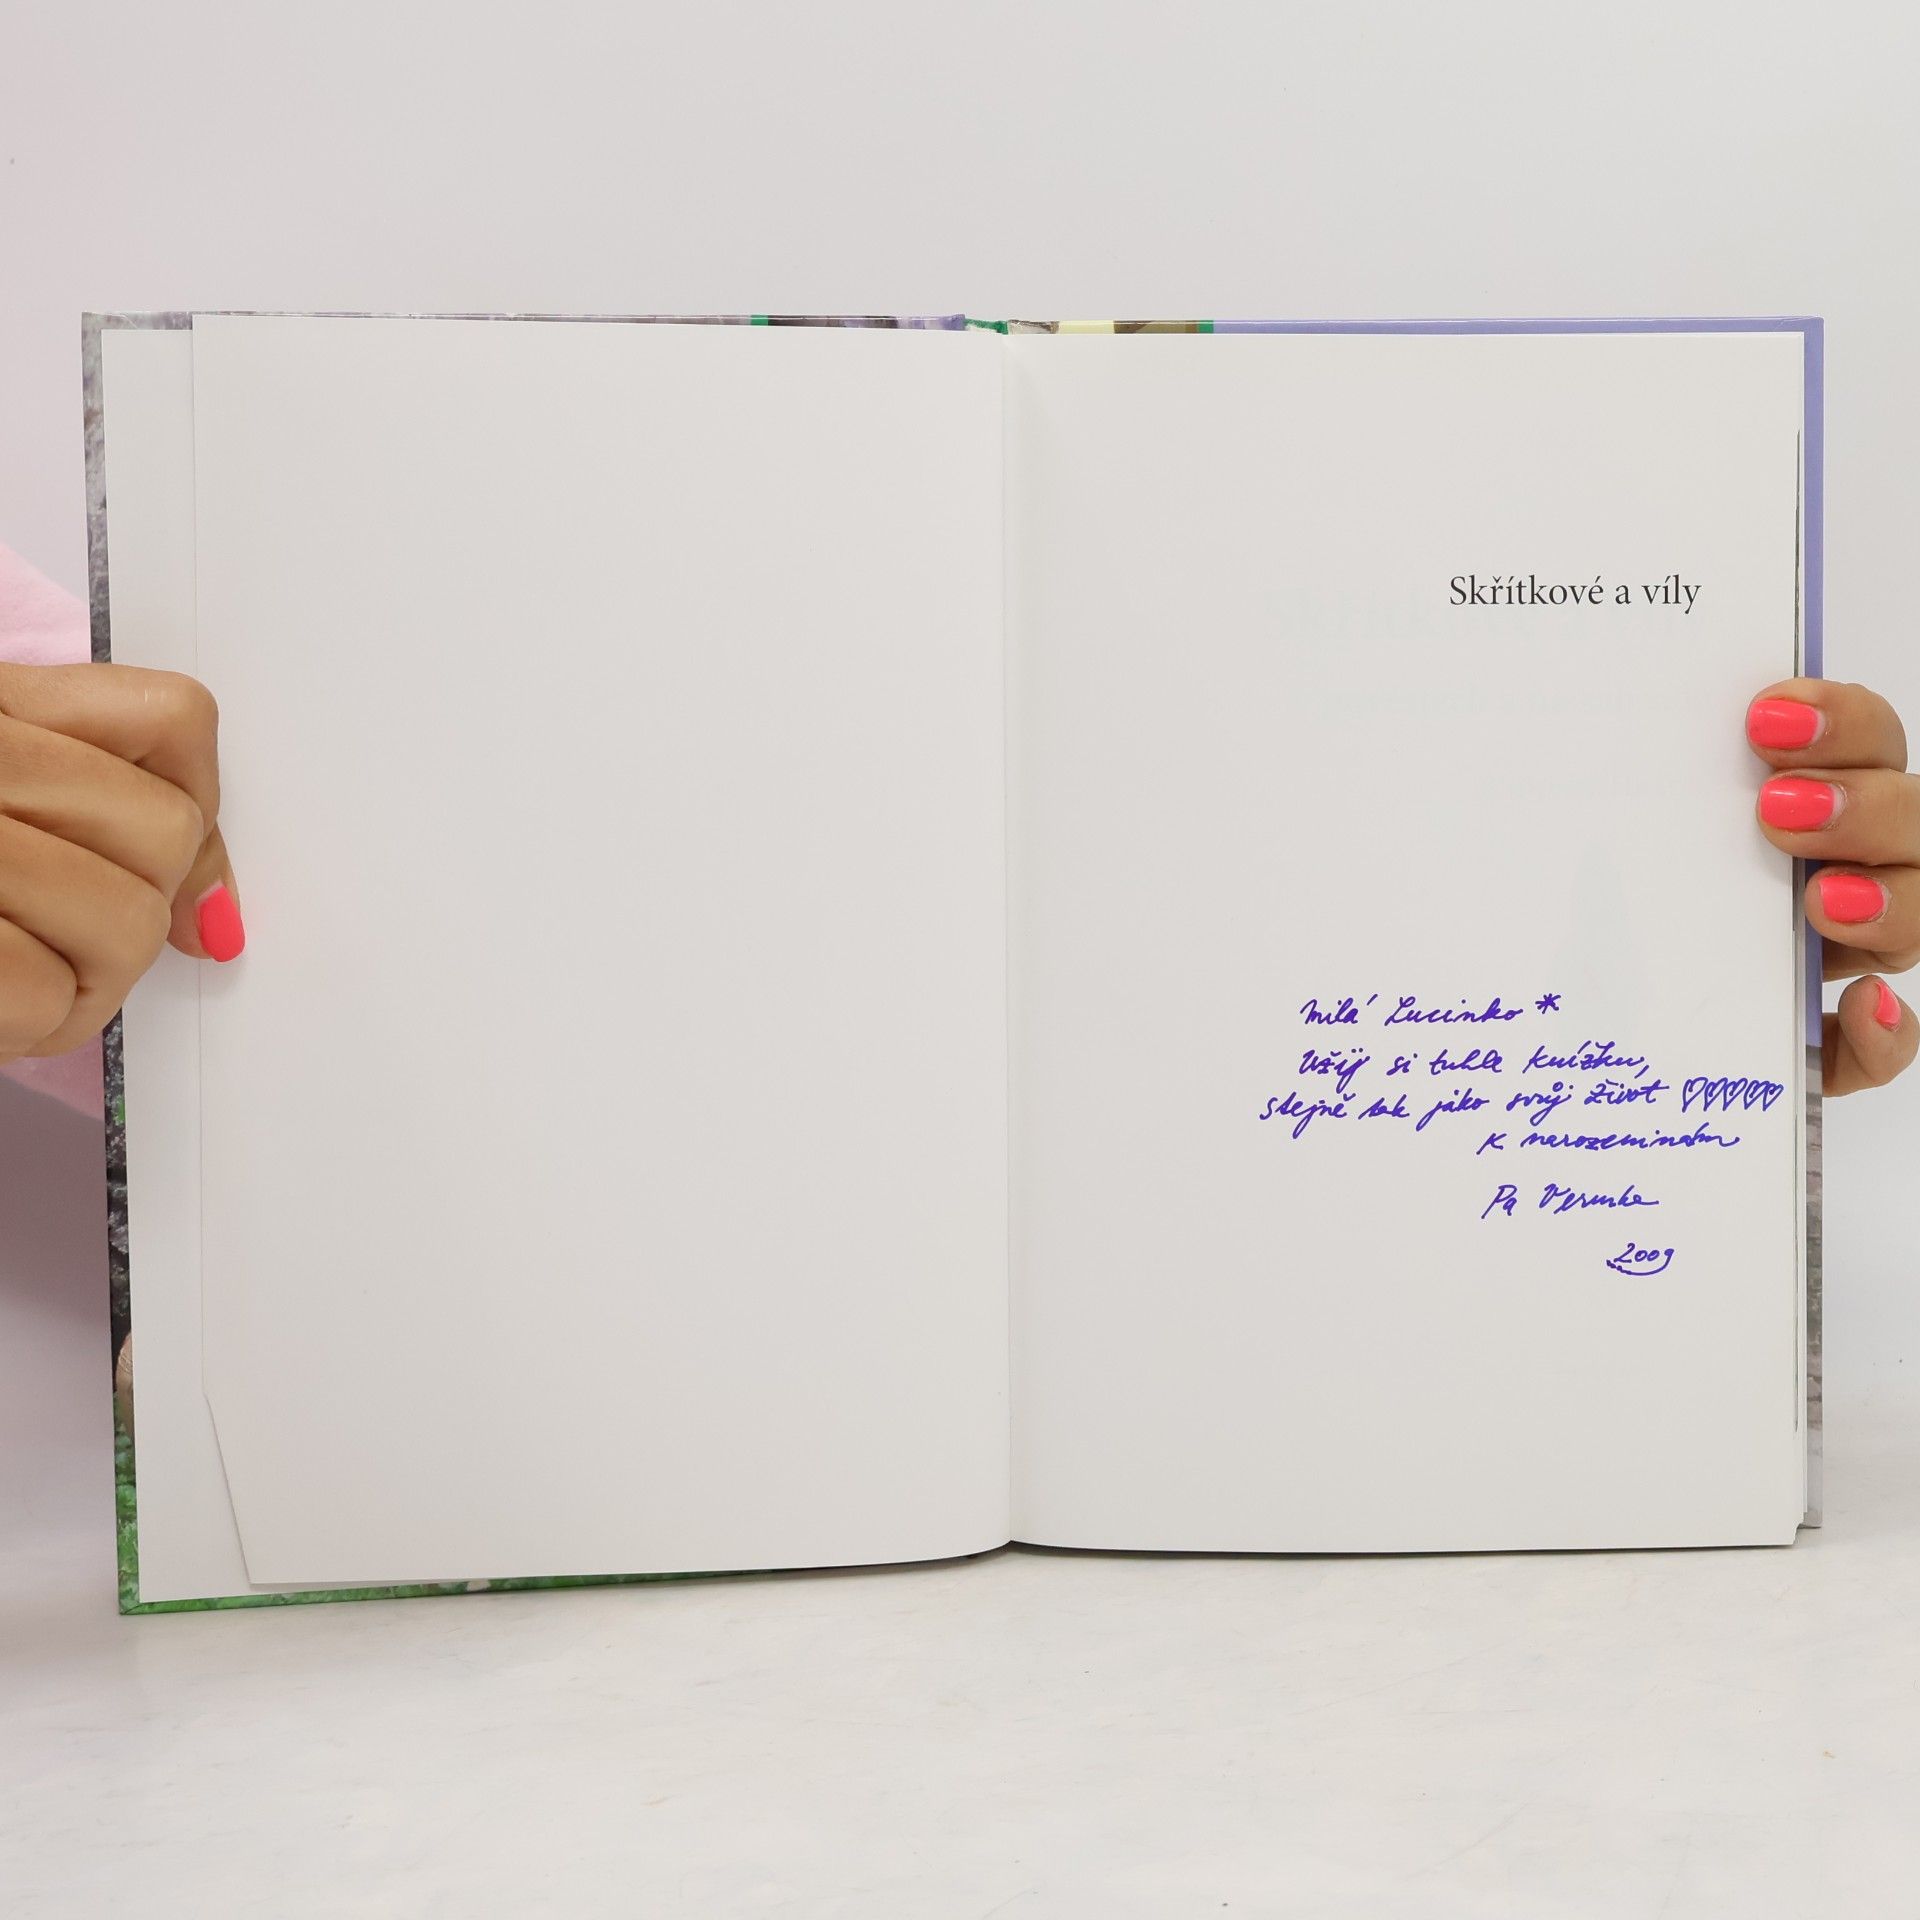 Skřítkové a víly
Milá Lucinko *
Užij si tuhle knížku,
stejně tak jako svůj život ♡♡♡♡♡
K narozeninám
Pa Verunka
2009